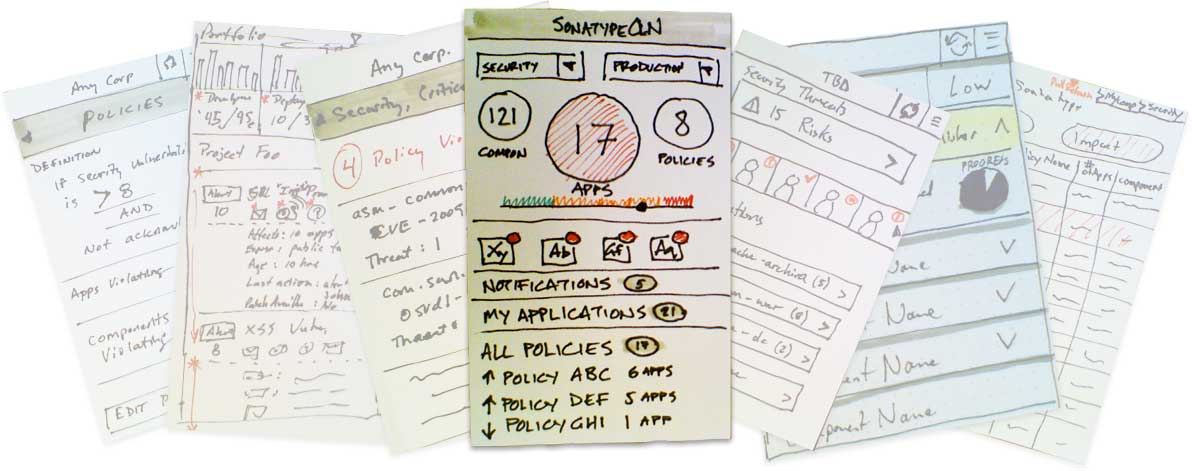 Any Corp
POLICIES
DEFINITION
If Security Vulnerabili
is > 8
AND
Not acknow
Apps Violating
Components
Violating
EDIT P
Portfolio
10 / 3
Project Foo
Alert
10
Affects: 10 apps
Age: 10 hrs
Last action:
Alert XSS
8
Any Corp.
Security, Critical
4 Policy Vio
asm-common
CVE-2009
Threat: 1
com.sun.
OSVDB-
Threat:
SONATYPE CLN
SECURITY
PRODUCTION
121
COMPON
17
APPS
8
POLICIES
Xy
Ab
Gf
Aq
NOTIFICATIONS 5
MY APPLICATIONS 21
ALL POLICIES 17
↑ POLICY ABC 6 APPS
↑ POLICY DEF 5 APPS
↓ POLICY GHI 1 APP
TBD
Security Threats
15 Risks >
ations
ache-archiva (5) >
m-war (8) >
-dc (2) >
Low
ular
PROGRESS
Name
Name
ent Name
omponent Name
Sonatype
Security
Impact
icy Name
# of Apps
component